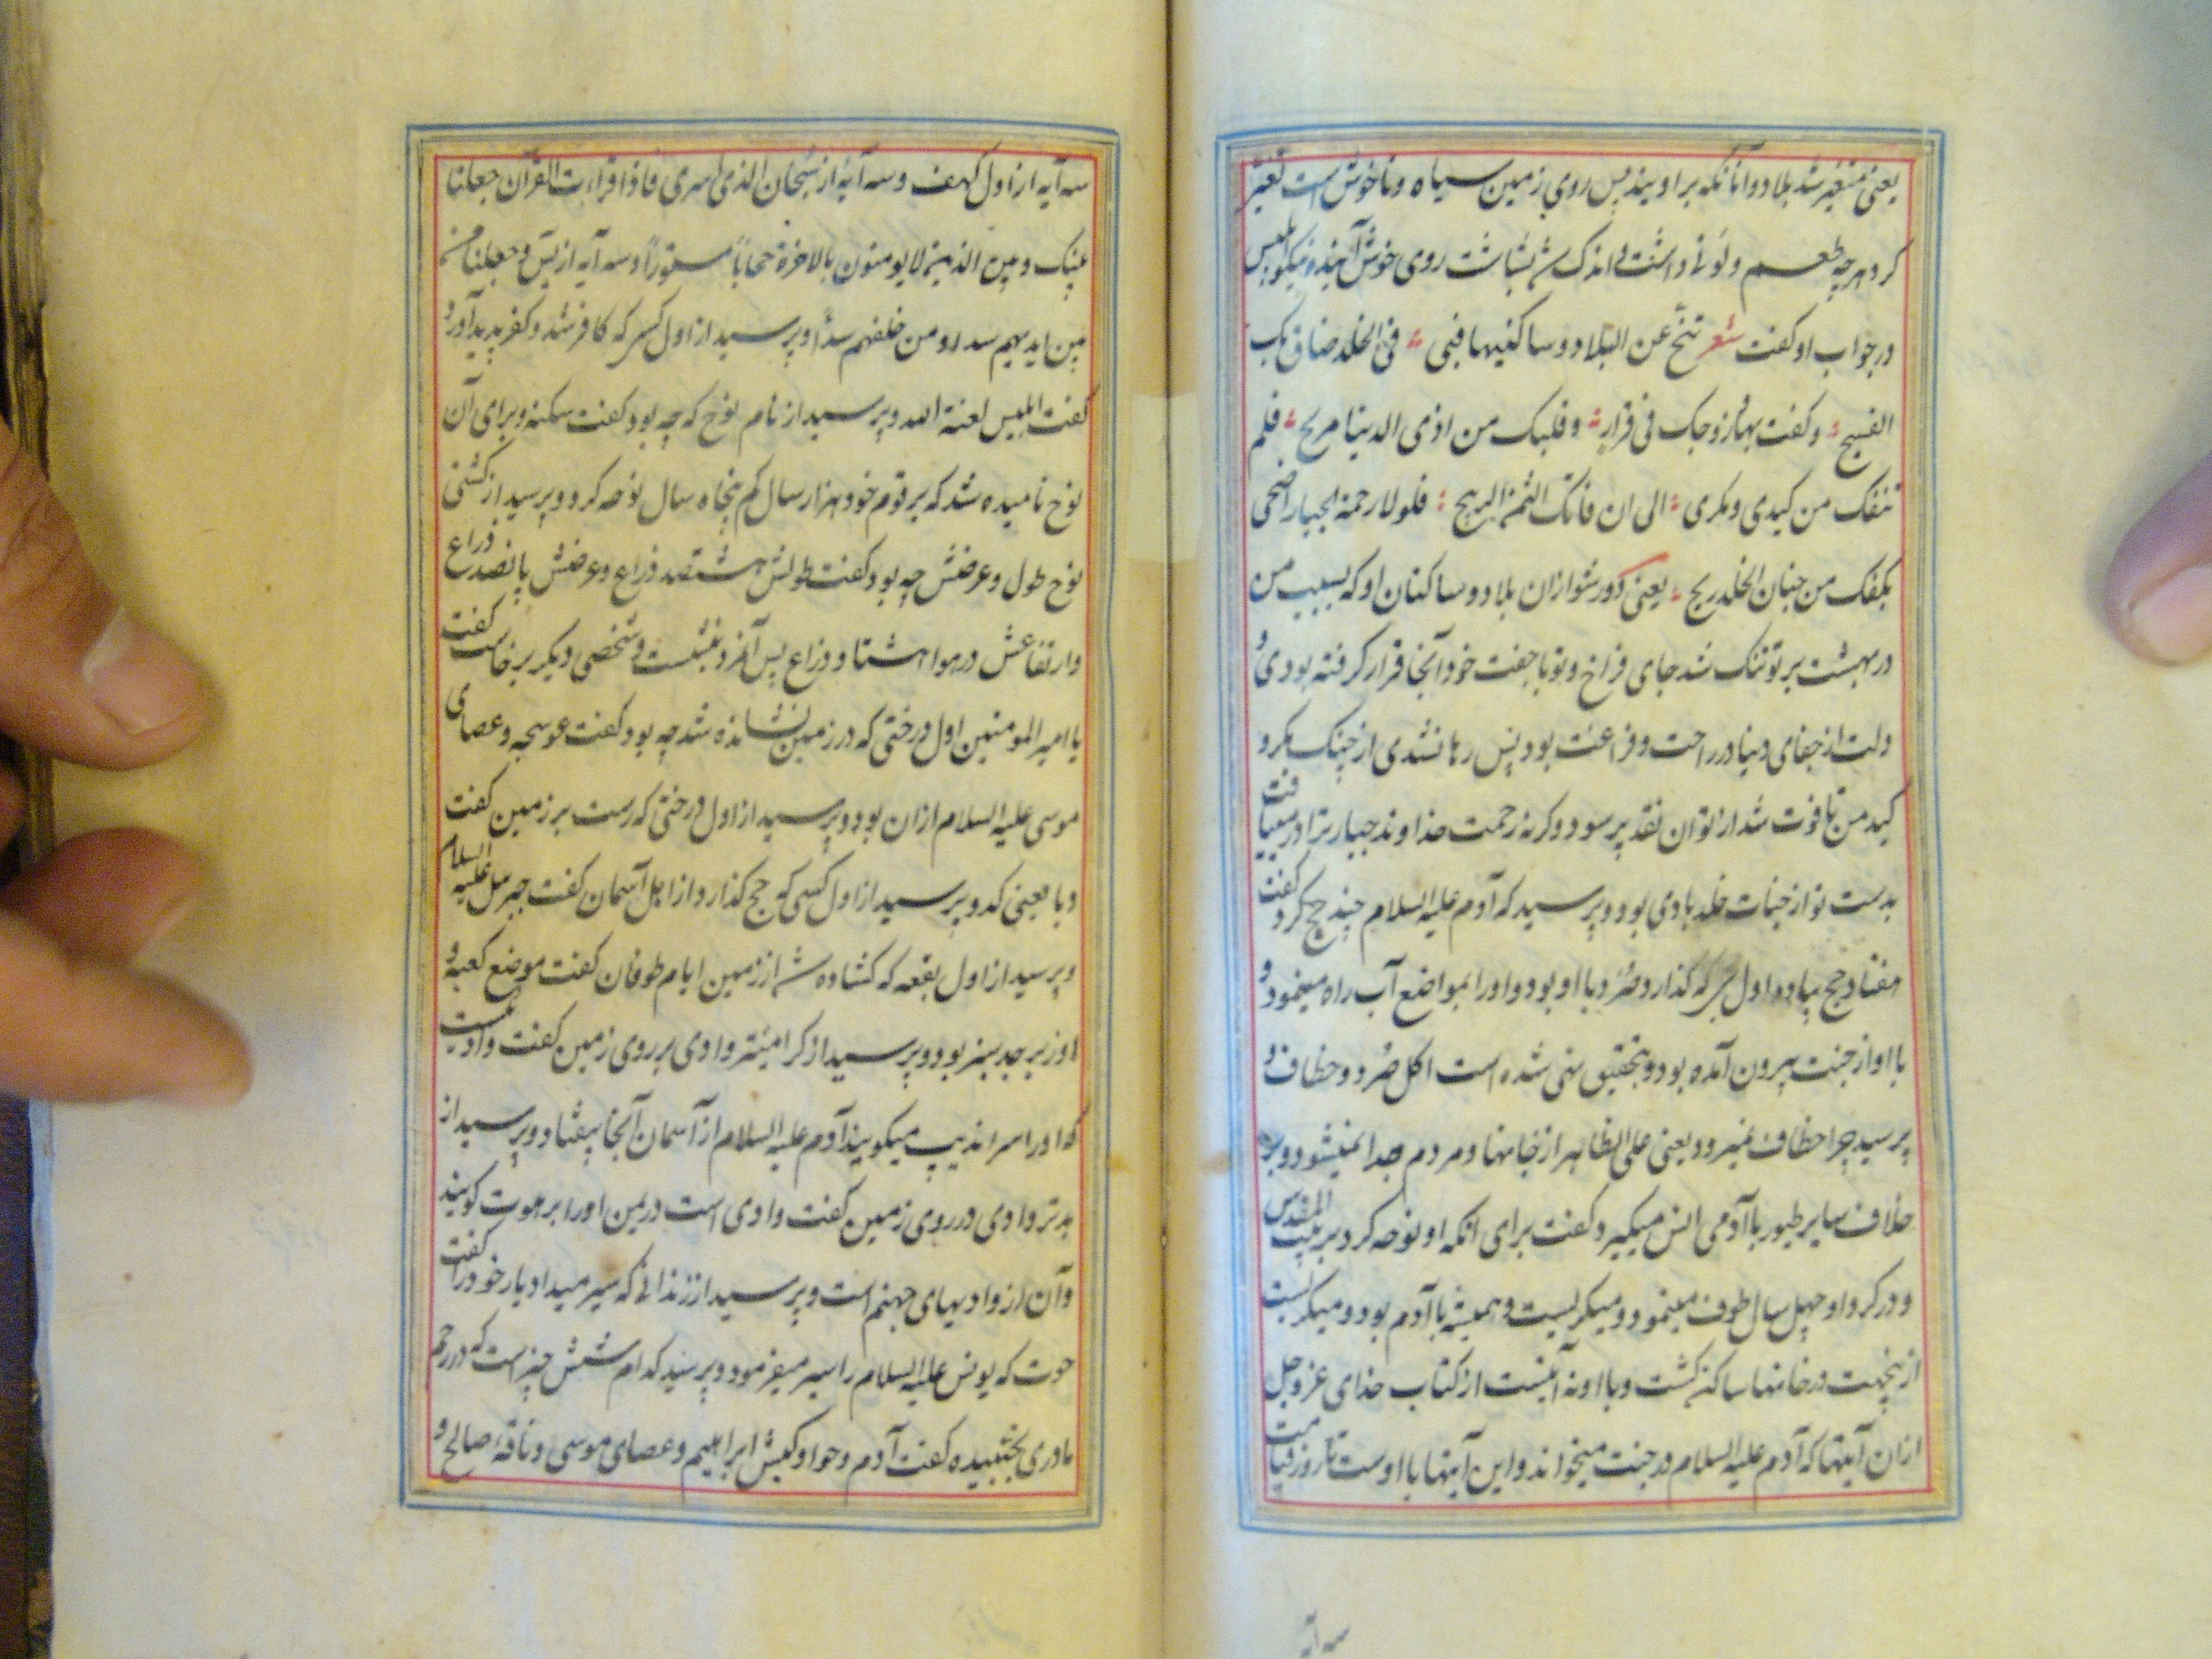 یعنی متغیر شد بلاد و آنانکه بر اویند پس روی زمین سیاه و ناخوش است تغیر
کرد هرچه طعم و لونی داشت و اندک شد بشاشت روی خوش آینده و نیکو ابلیس
در جواب او گفت شعر تنح عن البلاد و ساکنیها فبی فی الخلد ضاق بک
الفسیح و کنت بها و زوجک فی قرار و قلبک من اذی الدنیا مریح فلم
تنفک من کیدی و مکری الی ان فاتک الثمن الربیح فلولا رحمة الجبار اضحی
بکفک من جنان الخلد ریح یعنی دور شو از ان بلاد و ساکنان او که بسبب من
در بهشت بر تو تنک شد جای فراخ و تو با جفت خود آنجا قرار کرفته بودی و
دلت از جفای دنیا در راحت و فراغت بود پس رها نشدی از چنک مکر و
کید من تا فوت شد از تو ان نقد پر سود و کرنه رحمت خداوند جبار ترا در میافت
بدست تو از جنات خلد بادی بود و پرسید که آدم علیه السلام چند حج کرد گفت
هفتاد حج پیاده اول حج که گذارد صُرد با او بود و او را بمواضع آب راه مینمود و
با او از جنت بیرون آمده بود و بتحقیق نهی شده است اکل صُرد و خطاف و
پرسید چرا خطاف نمیرود یعنی علی الظاهر از خانها و مردم جدا نمیشود و بر
خلاف سایر طیور با آدمی انس میکیرد کفت برای انکه او نوحه کرد بر بیت المقدس
و در کرد او چهل سال طوف مینمود و میکریست و همیشه با آدم بود و میکریست
از ینجهت در خانها ساکن کشت و با او نه آیتست از کتاب خدای عز و جل
از ان آیتها که آدم علیه السلام در جنت میخواند و این آیتها با اوست تا روز قیامت
سه آیه
سه آیه از اول کهف و سه آیه از سبحان الذی اسری فاذا قراءت القرآن جعلنا
بینک و بین الذین لا یومنون بالاخرة حجاباً مستوراً و سه آیه از یس و جعلنا من
بین ایدیهم سدا و من خلفهم سدّاً و پرسید از اول کسی که کافر شد و کفر پدید آورد
گفت ابلیس لعنه الله و پرسید از نام نوح که چه بود کفت سکنه و برای آن
نوح نامیده شد که بر قوم خود هزار سال کم پنجاه سال نوحه کرد و پرسید از کشتی
نوح طول و عرضش چه بود کفت طولش هشتصد ذراع و عرضش پانصد ذراع
و ارتفاعش در هوا هشتاد ذراع پس آنمرد بنشست و شخصی دیکر برخاست کفت
یا امیر المومنین اول درختی که در زمین نشانده شد چه بود کفت عوسجه و عصای
موسی علیه السلام ازان بود و پرسید از اول درختی که رست بر زمین کفت
دبا یعنی کدو پرسید از اول کسی که حج کذارد از اهل آسمان کفت جبرئیل علیه السلام
و پرسید از اول بقعه که کشاده شد از زمین ایام طوفان کفت موضع کعبه و
او زبرجد سبز بود و پرسید از کرامیتر وادی بر روی زمین کفت وادیست
که او را سراندیب میکویند آدم علیه السلام از آسمان آنجا بیفتاد و پرسید از
بدتر وادی در روی زمین کفت وادی است در یمن او را برهوت کویند
و آن از وادیهای جهنم است و پرسید از زندانی که سیر میداد یار خود را کفت
حوت که یونس علیه السلام را سیر میفرمود و پرسید کدام شش چیز است که در رحم
مادری نجنبیده کفت آدم و حوا و کبش ابراهیم و عصای موسی و ناقهٔ صالح و